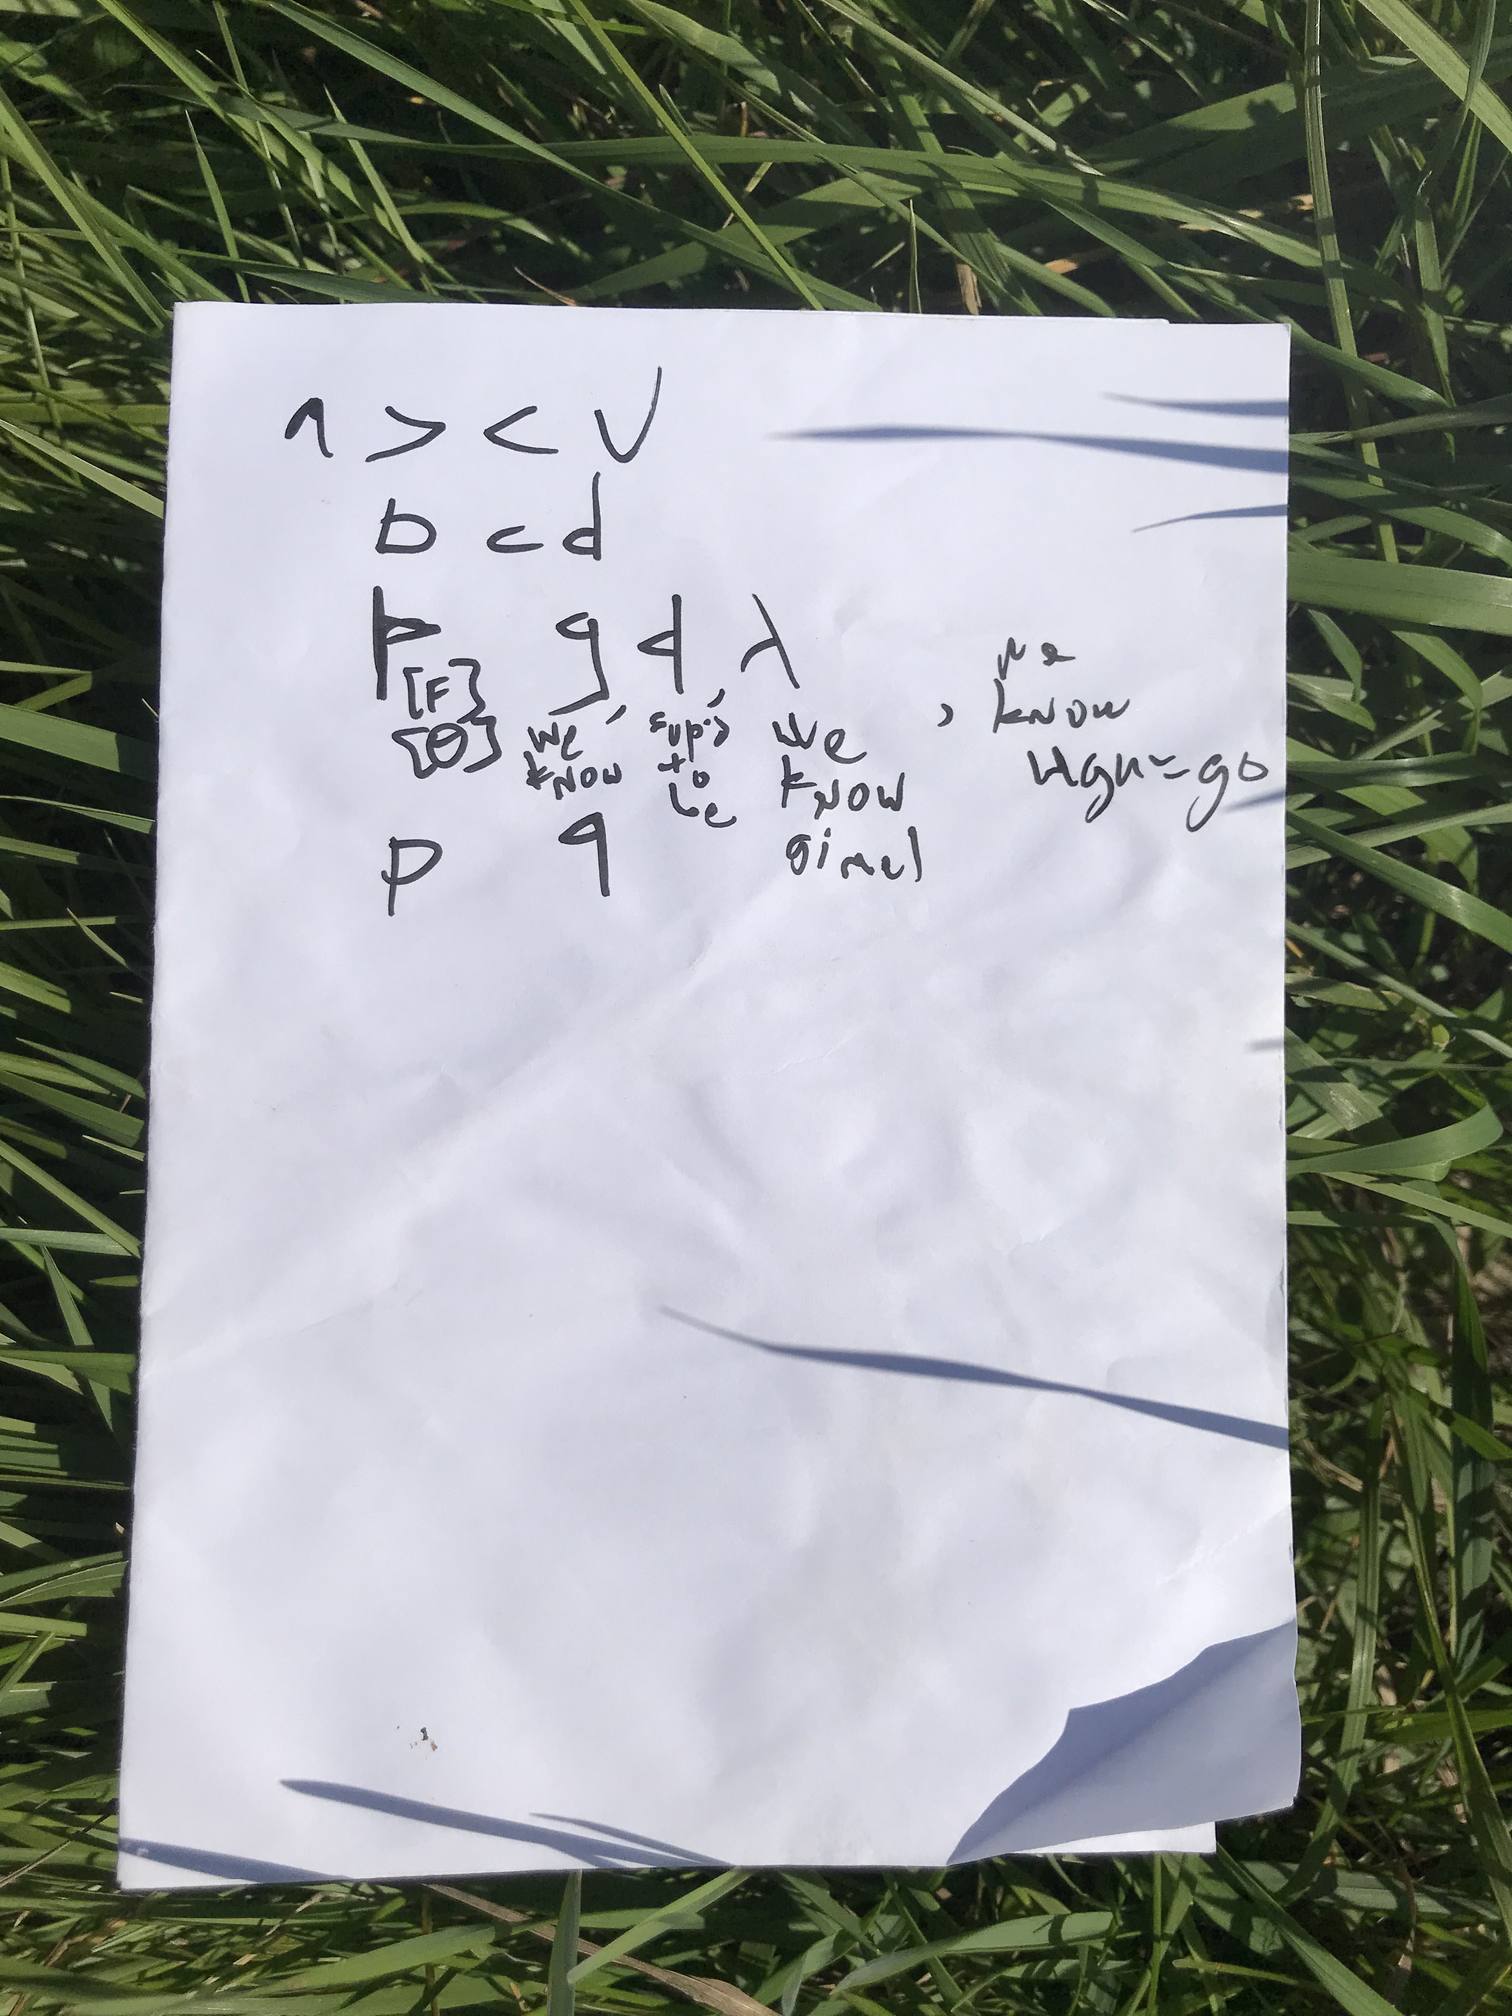 ʌ > < V
b c d
þ g d λ
[F]
[Θ] we know, sup's to be, we know gimel, we know Hgh=go
p q